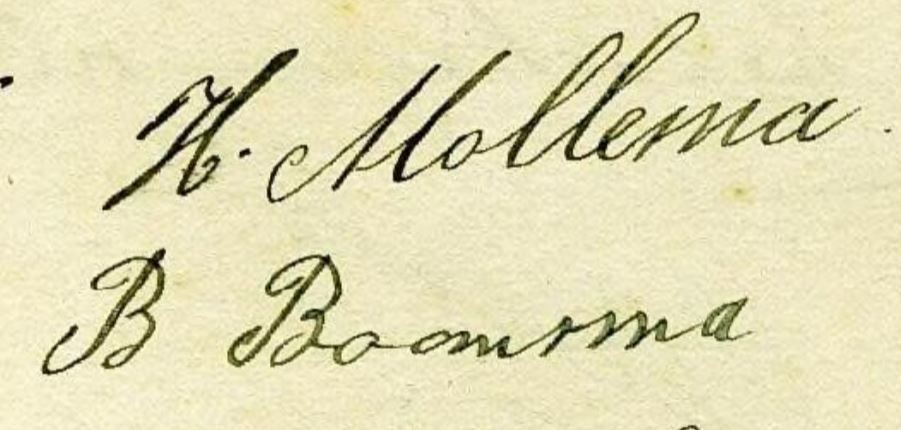 H. Mollema.
B Boomsma